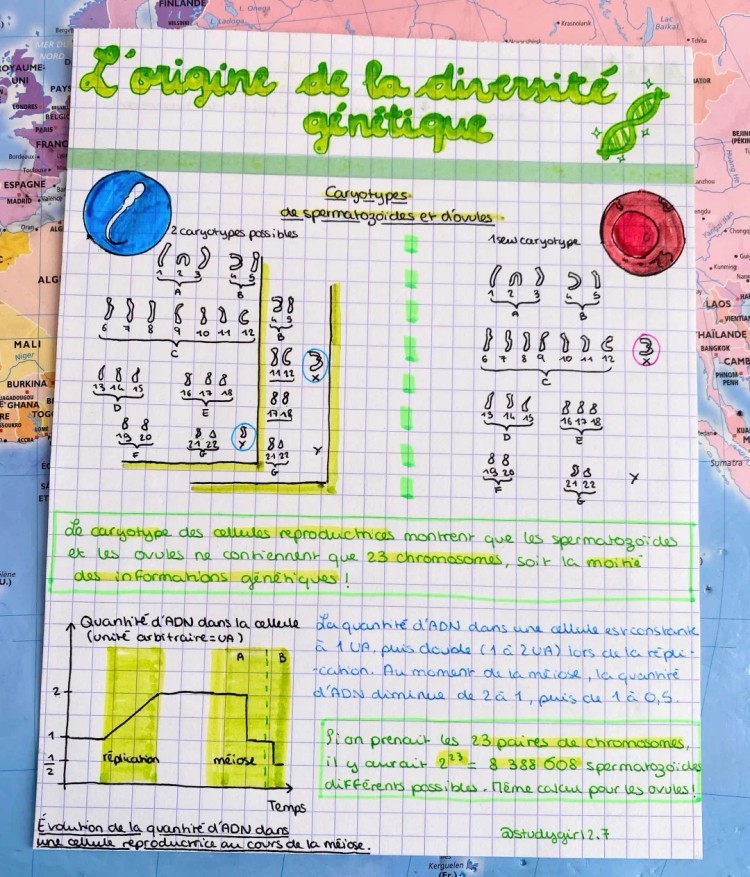 L'origine de la diversité
génétique
Caryotypes
de spermatozoïdes et d'ovules
2 caryotypes possibles
1 2 3 4 5
A B
6 7 8 9 10 11 12
C
13 14 15 16 17 18
D E
19 20 21 22 X
F G
4 5
B
11 12 X
17 18
21 22 X
G
1 seul caryotype
1 2 3 4 5
A B
6 7 8 9 10 11 12 X
C
13 14 15 16 17 18
D E
19 20 21 22 X
F G
Le caryotype des cellules reproductrices montrent que les spermatozoïdes
et les ovules ne contiennent que 23 chromosomes, soit la moitié
des informations génétiques !
Quantité d'ADN dans la cellule
(unité arbitraire=UA)
A B
2
1
1/2
réplication méiose
Temps
Évolution de la quantité d'ADN dans
une cellule reproductrice au cours de la méiose.
La quantité d'ADN dans une cellule est constante
à 1 UA, puis double (1 à 2 UA) lors de la répli-
-cation. Au moment de la méiose, la quantité
d'ADN diminue de 2 à 1, puis de 1 à 0,5.
Si on prenait les 23 paires de chromosomes,
il y aurait 2²³ = 8 388 608 spermatozoïdes
différents possibles. Même calcul pour les ovules!
@studygirl2.7
FINLANDE
HELSINKI
L. Onega
L. Ladoga
Krasnoïarsk
Lac
Baïkal
Tchita
MER DU
NORD
ROYAUME-
UNI
LONDRES
PARIS
Bordeaux
Toulouse
ESPAGNE
MADRID
Valence
MALI
Niger
BURKINA
GHANA
ACCRA
LAOS
THAÏLANDE
BANGKOK
PHNOM
PENH
Sumatra
Kerguelen
(Fr.)